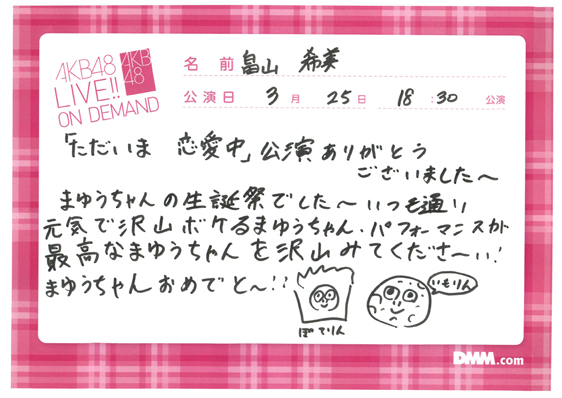 AKB48
LIVE!!
ON DEMAND
AKB
48
名 前 畠山 希美
公演日 3 月 25 日 18 : 30 公演
「ただいま 恋愛中」公演ありがとう
ございました〜
まゆうちゃんの生誕祭でした〜いつも通り
元気で沢山ボケるまゆうちゃん、パフォーマンスが
最高なまゆうちゃんを沢山みてくださーい!
まゆうちゃんおめでと〜!!
いもりん
ぽてりん
DMM.com